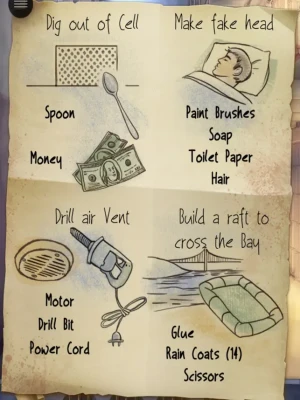 Dig out of Cell
Spoon
Money
Make fake head
Paint Brushes
Soap
Toilet Paper
Hair
Drill air Vent
Motor
Drill Bit
Power Cord
Build a raft to
cross the Bay
Glue
Rain Coats (14)
Scissors